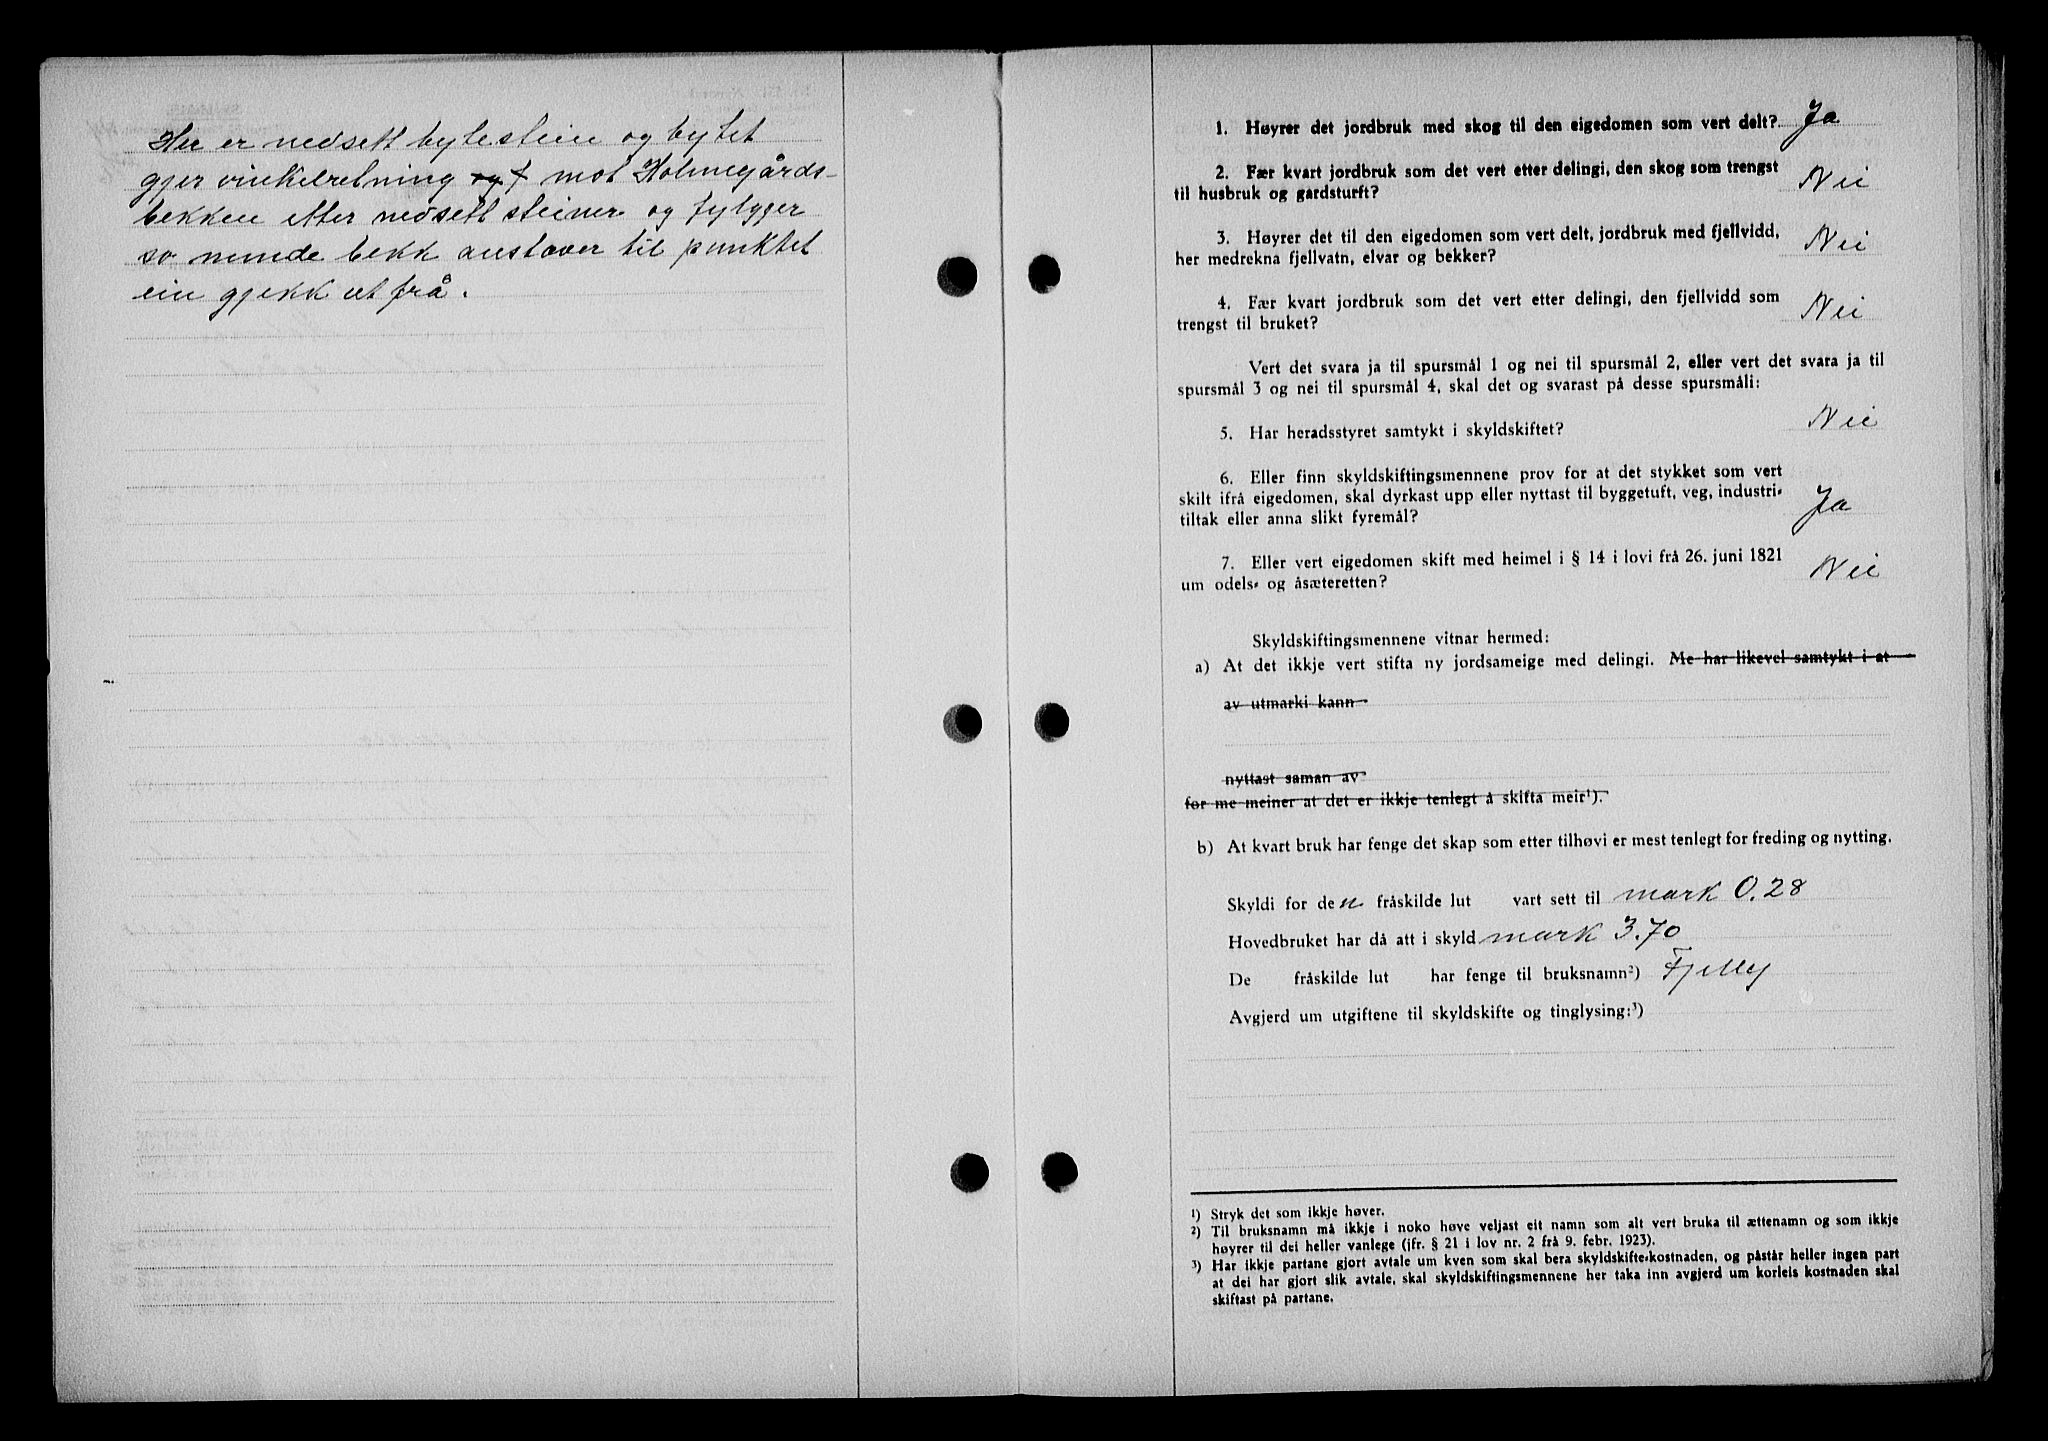 Her er nedsett bytestein og bytet
gjer vinkelretning og f mot Holmegårds-
bekken etter nedsett steiner og fylgjer
so nemde bekk austover til punktet
ein gjekk ut frå.
1. Høyrer det jordbruk med skog til den eigedomen som vert delt? Ja
2. Fær kvart jordbruk som det vert etter delingi, den skog som trengst
til husbruk og gardsturft? Nei
3. Høyrer det til den eigedomen som vert delt, jordbruk med fjellvidd,
her medrekna fjellvatn, elvar og bekker? Nei
4. Fær kvart jordbruk som det vert etter delingi, den fjellvidd som
trengst til bruket? Nei
Vert det svara ja til spursmål 1 og nei til spursmål 2, eller vert det svara ja til
spursmål 3 og nei til spursmål 4, skal det og svarast på desse spursmåli:
5. Har heradsstyret samtykt i skyldskiftet? Nei
6. Eller finn skyldskiftingsmennene prov for at det stykket som vert
skilt ifrå eigedomen, skal dyrkast upp eller nyttast til byggetuft, veg, industri-
tiltak eller anna slikt fyremål? Ja
7. Eller vert eigedomen skift med heimel i § 14 i lovi frå 26. juni 1821
um odels- og åsæteretten? Nei
Skyldskiftingsmennene vitnar hermed:
a) At det ikkje vert stifta ny jordsameige med delingi. Me har likevel samtykt i at
av utmarki kann
nyttast saman av
for me meiner at det er ikkje tenlegt å skifta meir¹).
b) At kvart bruk har fenge det skap som etter tilhøvi er mest tenlegt for freding og nytting.
Skyldi for den fråskilde lut vart sett til mark 0.28
Hovedbruket har då att i skyld mark 3.70
De fråskilde lut har fenge til bruksnamn²) Fjelly
Avgjerd um utgiftene til skyldskifte og tinglysing:³)
¹) Stryk det som ikkje høver.
²) Til bruksnamn må ikkje i noko høve veljast eit namn som alt vert bruka til ættenamn og som ikkje
høyrer til dei heller vanlege (jfr. § 21 i lov nr. 2 frå 9. febr. 1923).
³) Har ikkje partane gjort avtale um kven som skal bera skyldskifte-kostnaden, og påstår heller ingen part
at dei har gjort slik avtale, skal skyldskiftingsmennene her taka inn avgjerd um korleis kostnaden skal
skiftast på partane.